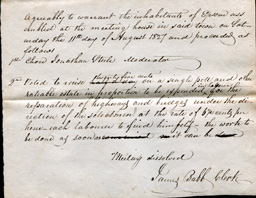 Agreeably to warrant the inhabitants of
assembled at the meeting house in said town on Satur
day the 11th day of August 1827 and proceeded as
follows
1st Chose Jonathan Stile Moderator
2d Voted to raise thirty five cents on a single poll and other
ratiable estate in proportion to be expended for the
reparation of highways and bridges under the di
rection of the selectmen at the rate of per
hour each labourer to find himself the work to
be done as soon as it can be
Meeting dissolved
James Babb Clerk